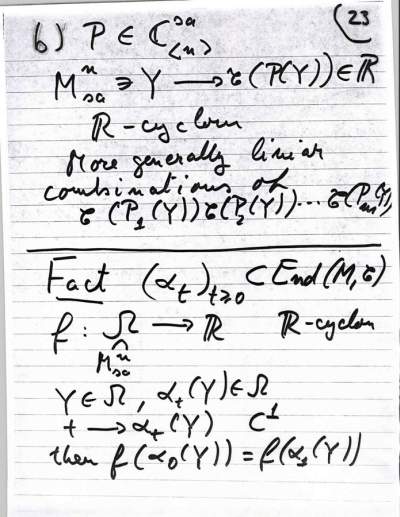 23
b) P ∈ ℂ^{sa}_{<n>}
M^n_{sa} ∋ Y → τ(P(Y)) ∈ ℝ
ℝ-cyclom
More generally linear
combinations of
τ(P_1(Y))τ(P_2(Y))...τ(P_m(Y))
Fact (α_t)_{t≥0} ⊂ End(M,τ)
f : Ω → ℝ ℝ-cyclom
∩
M^n_{sa}
Y ∈ Ω, α_t(Y) ∈ Ω
t → α_t(Y) C^1
then f(α_0(Y)) = f(α_1(Y))